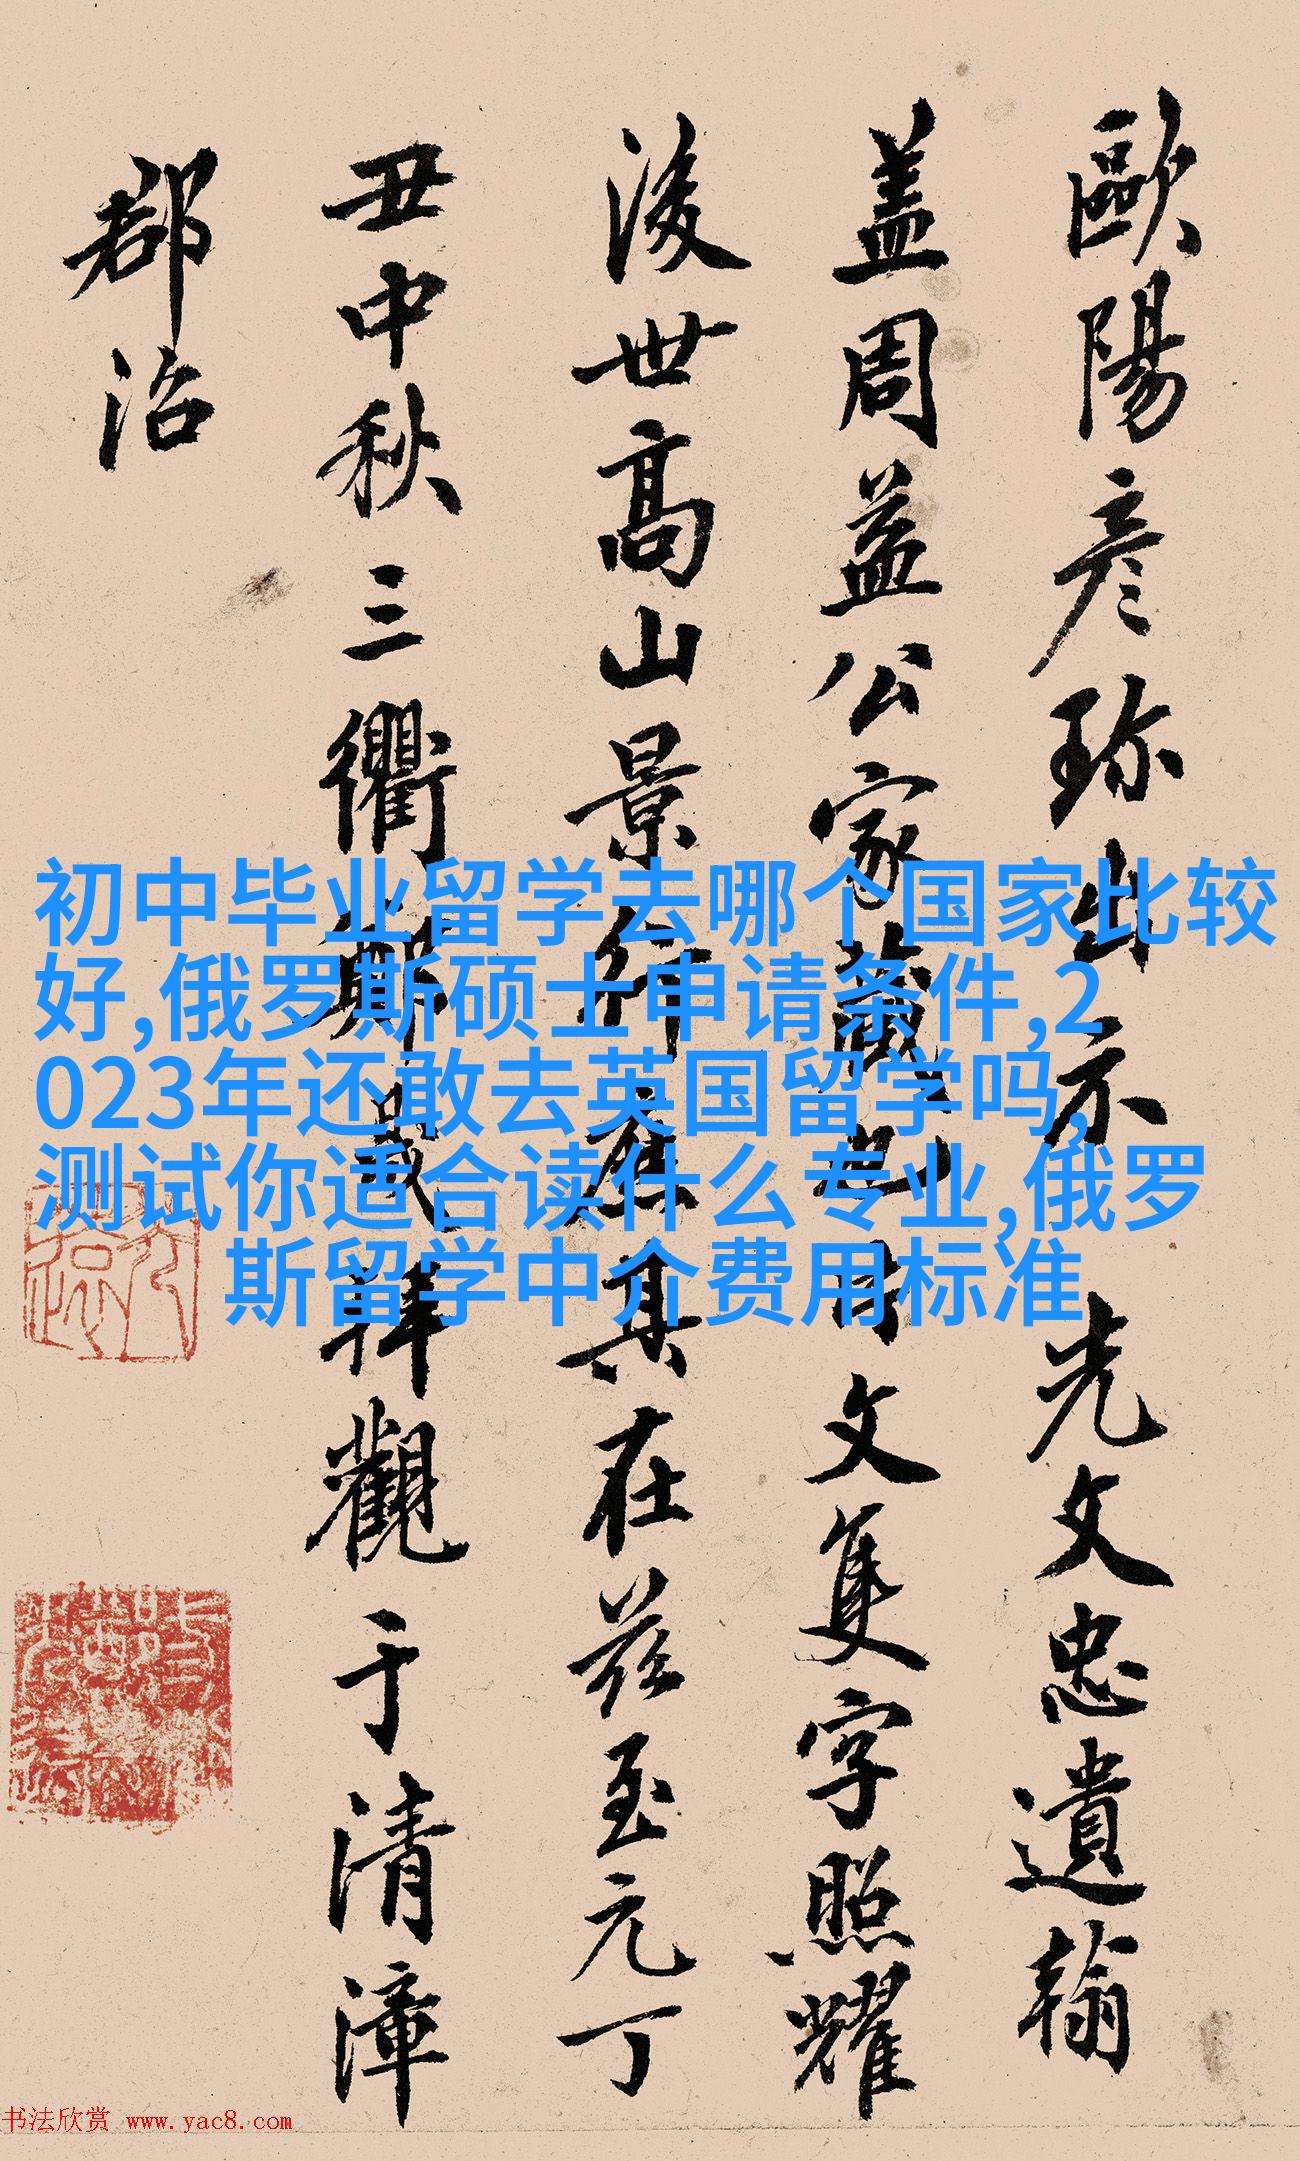 歐陽彦珎出示光文忠遺翰
盖周益公家藏也片文隻字照耀
後世高山景行
其在茲至元丁
丑中秋三衢鄭
拜觀于清漳
郡治
初中毕业留学去哪个国家比较
好,俄罗斯硕士申请条件,2
023年还敢去英国留学吗,
测试你适合读什么专业,俄罗
斯留学中介费用标准
书法欣赏 www.yac8.com